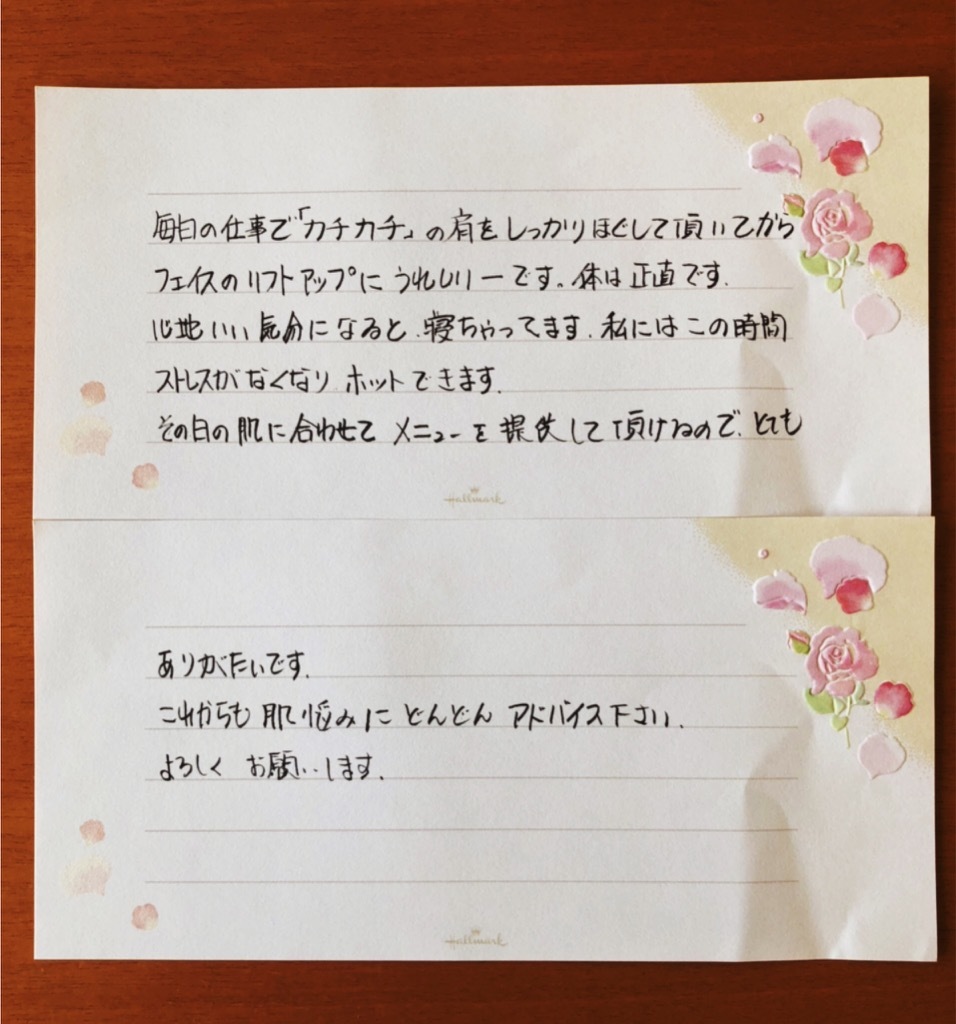 毎日の仕事で「カチカチ」の肩をしっかりほぐして頂いてから
フェイスのリフトアップにうれしいーです。体は正直です.
心地いい気分になると.寝ちゃってます.私にはこの時間
ストレスがなくなり ホットできます.
その日の肌に合わせて メニューを提供して頂けるので.とても
Hallmark
ありがたいです.
これからも 肌悩みに どんどん アドバイス下さい.
よろしく お願いします.
Hallmark